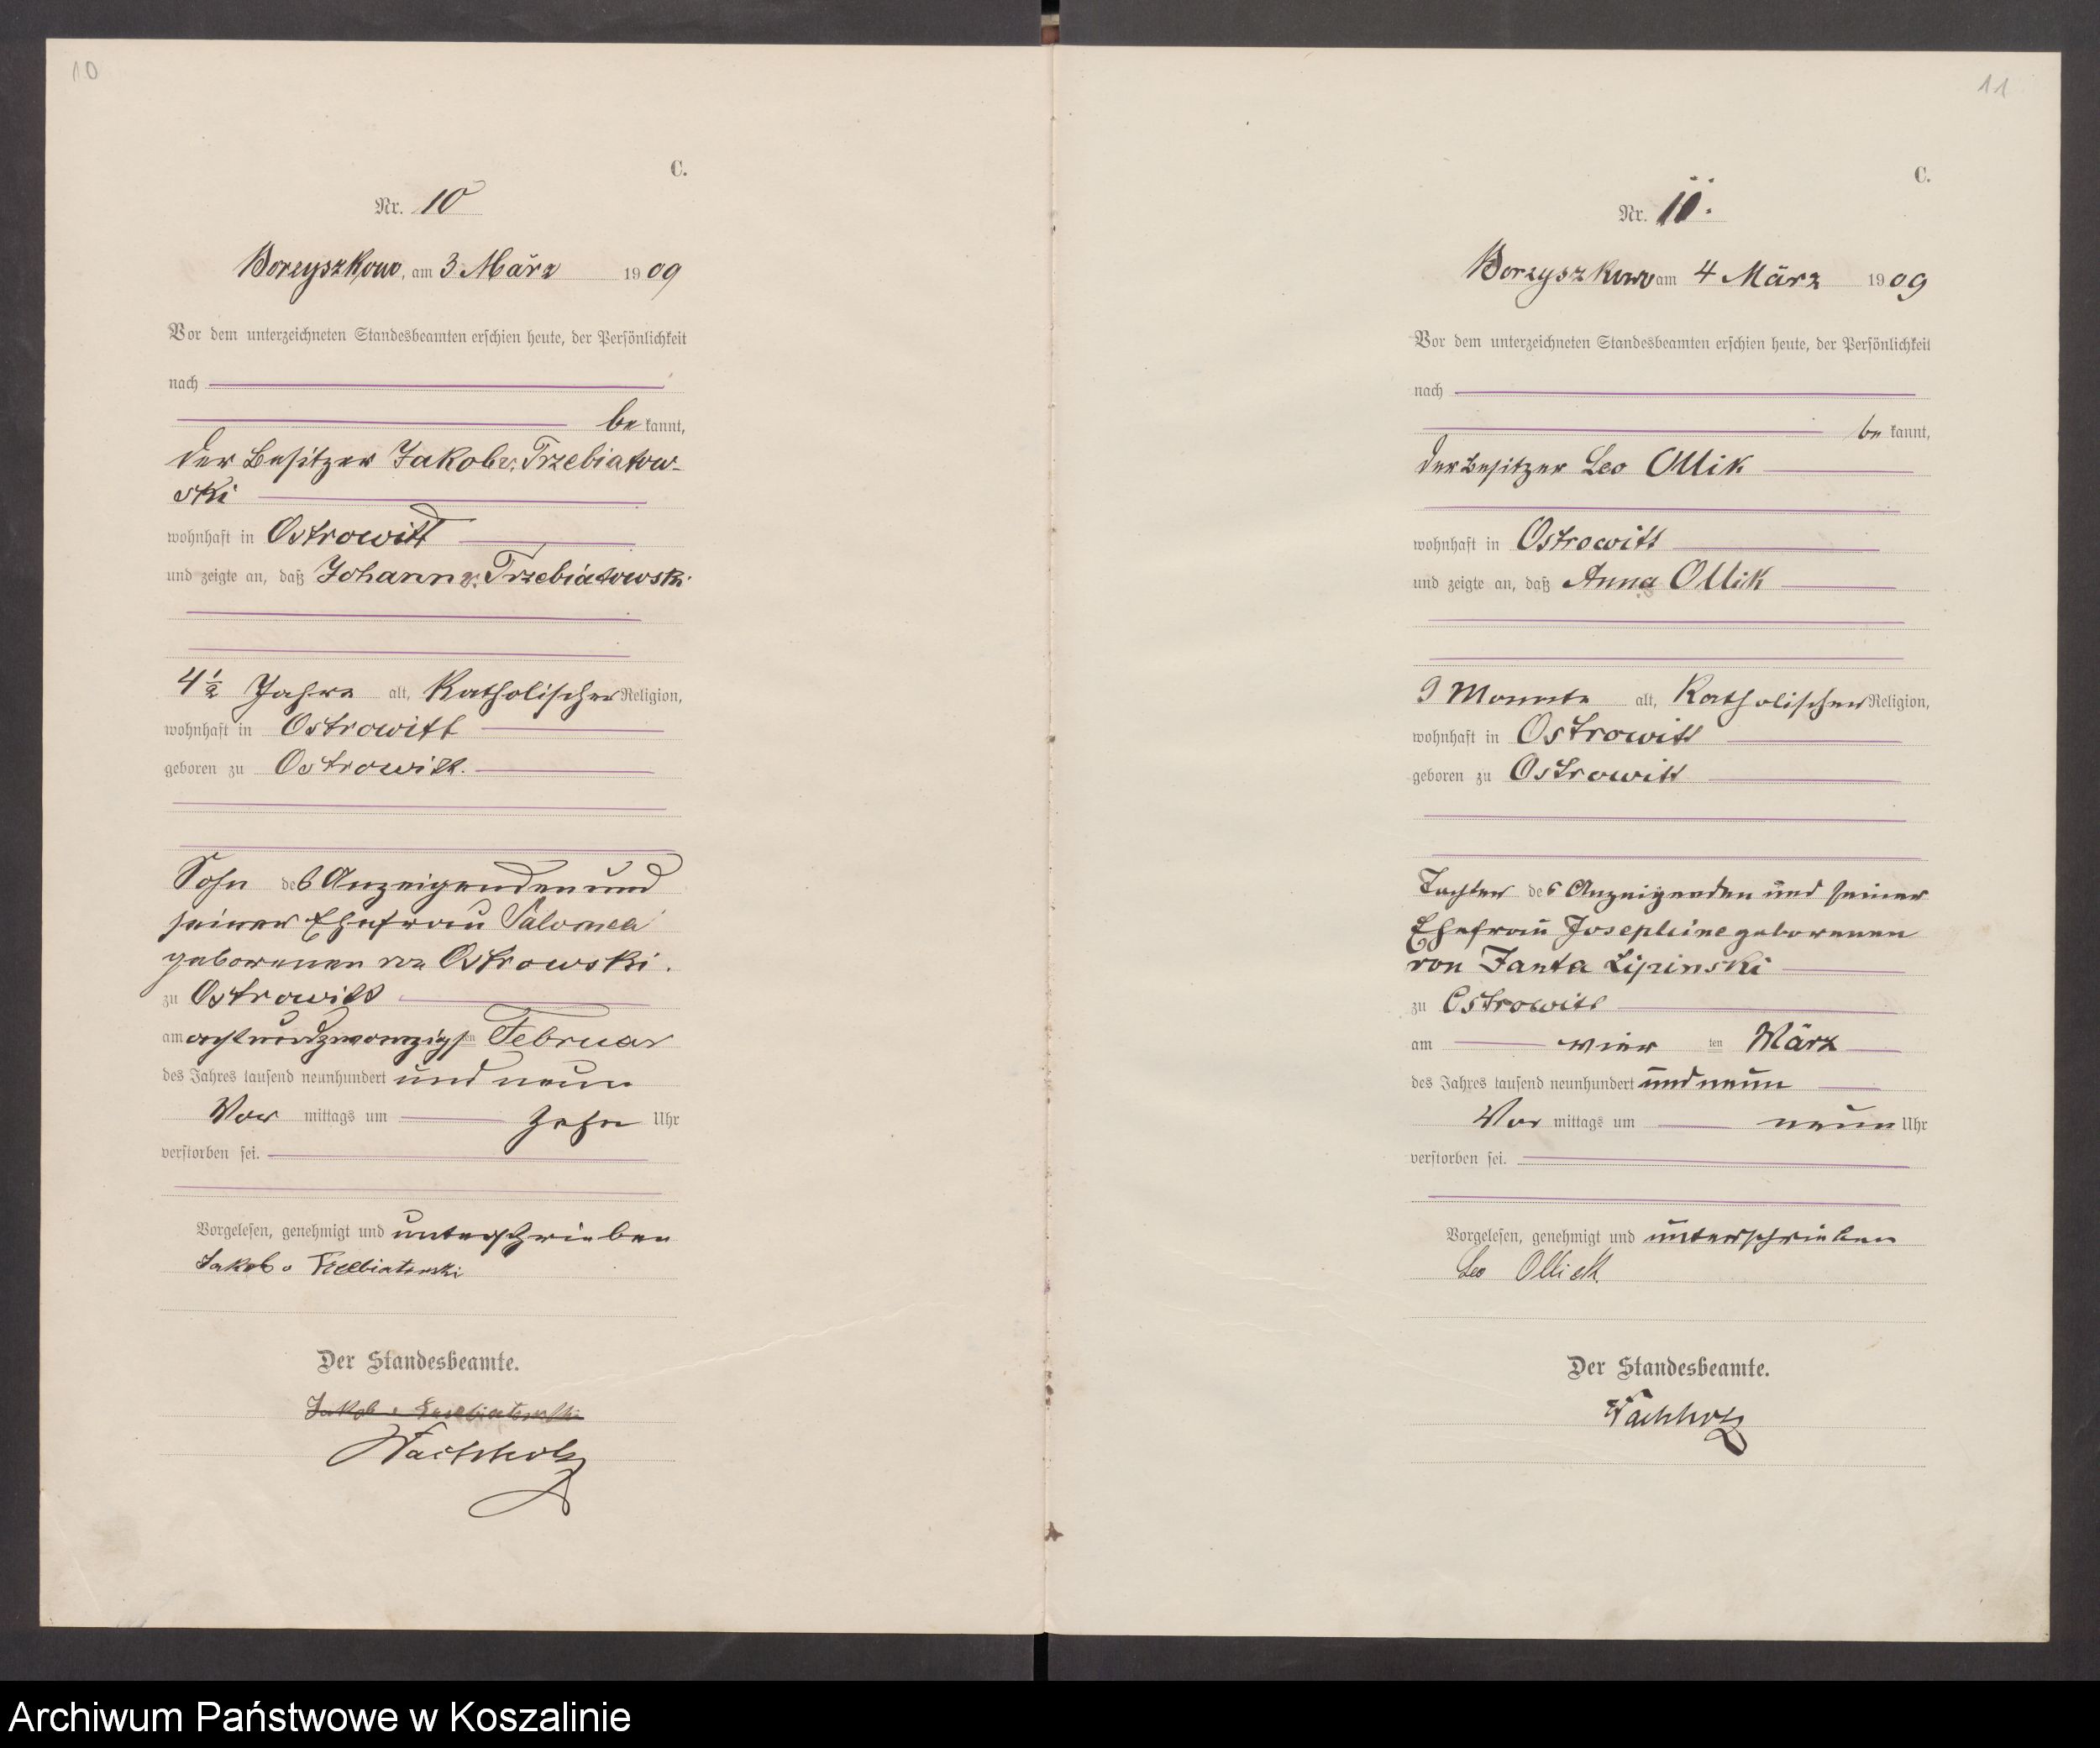 10
C.
Nr. 10
Borzyszkowo, am 3. März 1909
Vor dem unterzeichneten Standesbeamten erschien heute, der Persönlichkeit
nach
be kannt,
der Besitzer Jakob v. Trzebiatow-
ski
wohnhaft in Ostrowitt
und zeigte an, daß Johann v. Trzebiatowski
4½ Jahre alt, Katholischer Religion,
wohnhaft in Ostrowitt
geboren zu Ostrowitt.
Sohn des Anzeigenden und
seiner Ehefrau Salomea
geborenen von Ostrowski.
zu Ostrowitt
am achtundzwanzigsten Februar
des Jahres tausend neunhundert und neun
Vor mittags um zehn Uhr
verstorben sei.
Vorgelesen, genehmigt und unterschrieben
Jakob v Trzebiatowski
Der Standesbeamte.
Jakob v Trzebiatowski
Wachholz
11
C.
Nr. 11.
Borzyszkowo am 4 März 1909
Vor dem unterzeichneten Standesbeamten erschien heute, der Persönlichkeit
nach
be kannt,
der Besitzer Leo Ollik
wohnhaft in Ostrowitt
und zeigte an, daß Anna Ollik
9 Monate alt, Katholischer Religion,
wohnhaft in Ostrowitt
geboren zu Ostrowitt
Tochter des Anzeigenden und seiner
Ehefrau Josephine geborenen
von Janta Lipinski
zu Ostrowitt
am vier ten März
des Jahres tausend neunhundert und neun
Vor mittags um neun Uhr
verstorben sei.
Vorgelesen, genehmigt und unterschrieben
Leo Ollick
Der Standesbeamte.
Wachholz
Archiwum Państwowe w Koszalinie